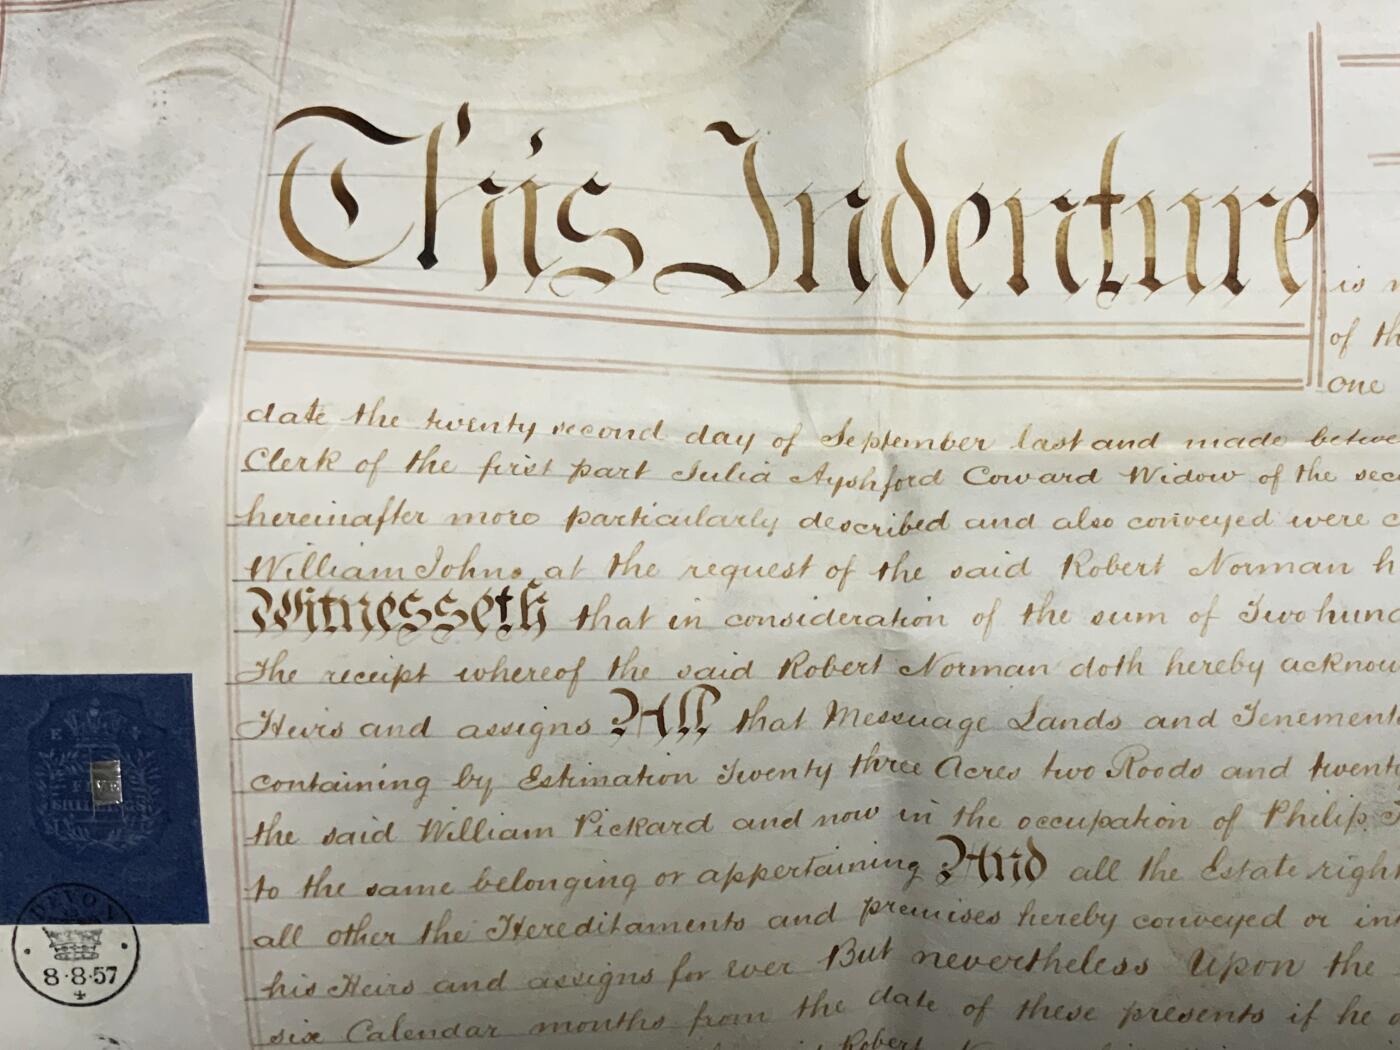 This Indenture is
of th
one
date the twenty second day of September last and made betwe
Clerk of the first part Julia Ayshford Coward Widow of the sec
hereinafter more particularly described and also conveyed were c
William Johns at the request of the said Robert Norman h
Witnesseth that in consideration of the sum of Two hund
The receipt whereof the said Robert Norman doth hereby acknow
Heirs and assigns All that Messuage Lands and Tenements
containing by Estimation Twenty three Acres two Roods and twent
the said William Pickard and now in the occupation of Philip
to the same belonging or appertaining And all the Estate right
all other the Hereditaments and premises hereby conveyed or in
his Heirs and assigns for ever But nevertheless Upon the
six Calendar months from the date of these presents if he
Robert
FIVE
SHILLINGS
DEVON
8·8·57